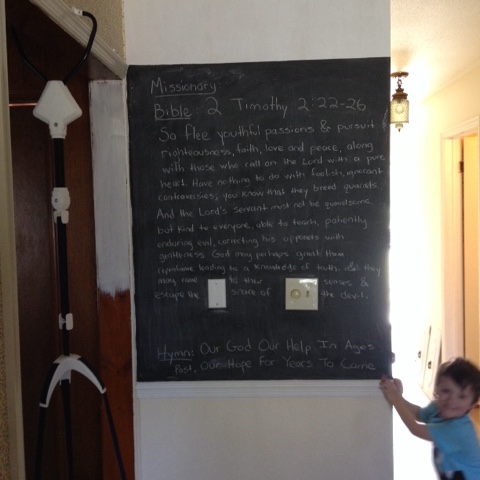 Missionary
Bible: 2 Timothy 2:22-26
So flee youthful passions & pursuit
righteousness, faith, love and peace, along
with those who call on the Lord with a pure
heart. Have nothing to do with foolish, ignorant
controversies; you know that they breed quarrels.
And the Lord's servant must not be quarrelsome
but kind to everyone, able to teach, patiently
enduring evil, correcting his opponents with
gentleness God may perhaps grant them
repentance leading to a knowledge of truth, and they
may come to their senses &
escape the snare of the devil.
Hymn: Our God Our Help In Ages
Past, Our Hope For Years To Come